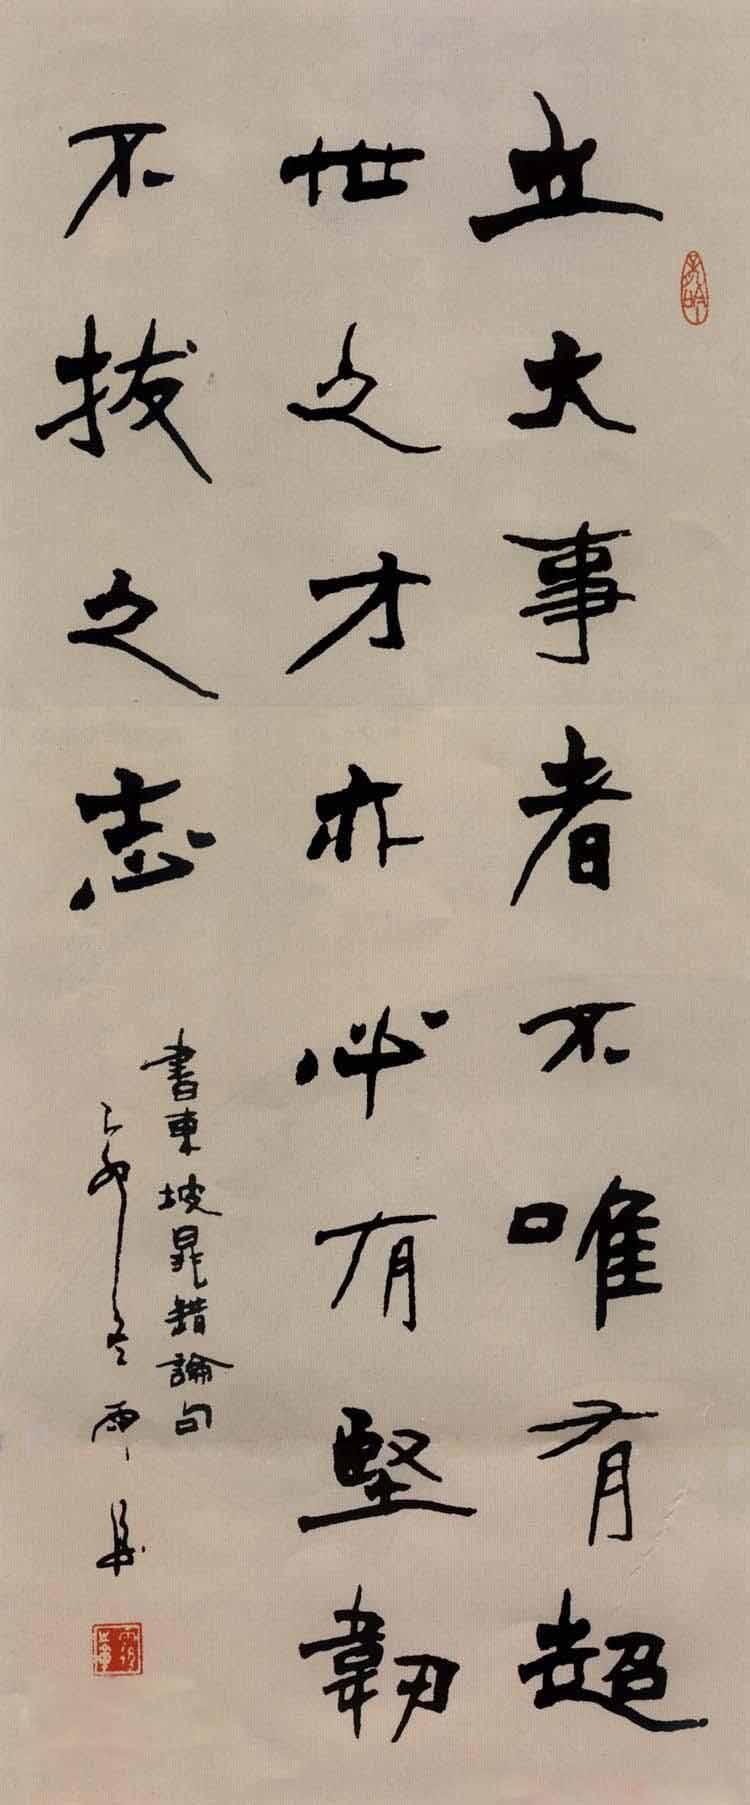 立大事者不唯有超
世之才亦必有堅韌
不拔之志
書東坡晁錯論句
乙卯冬雨